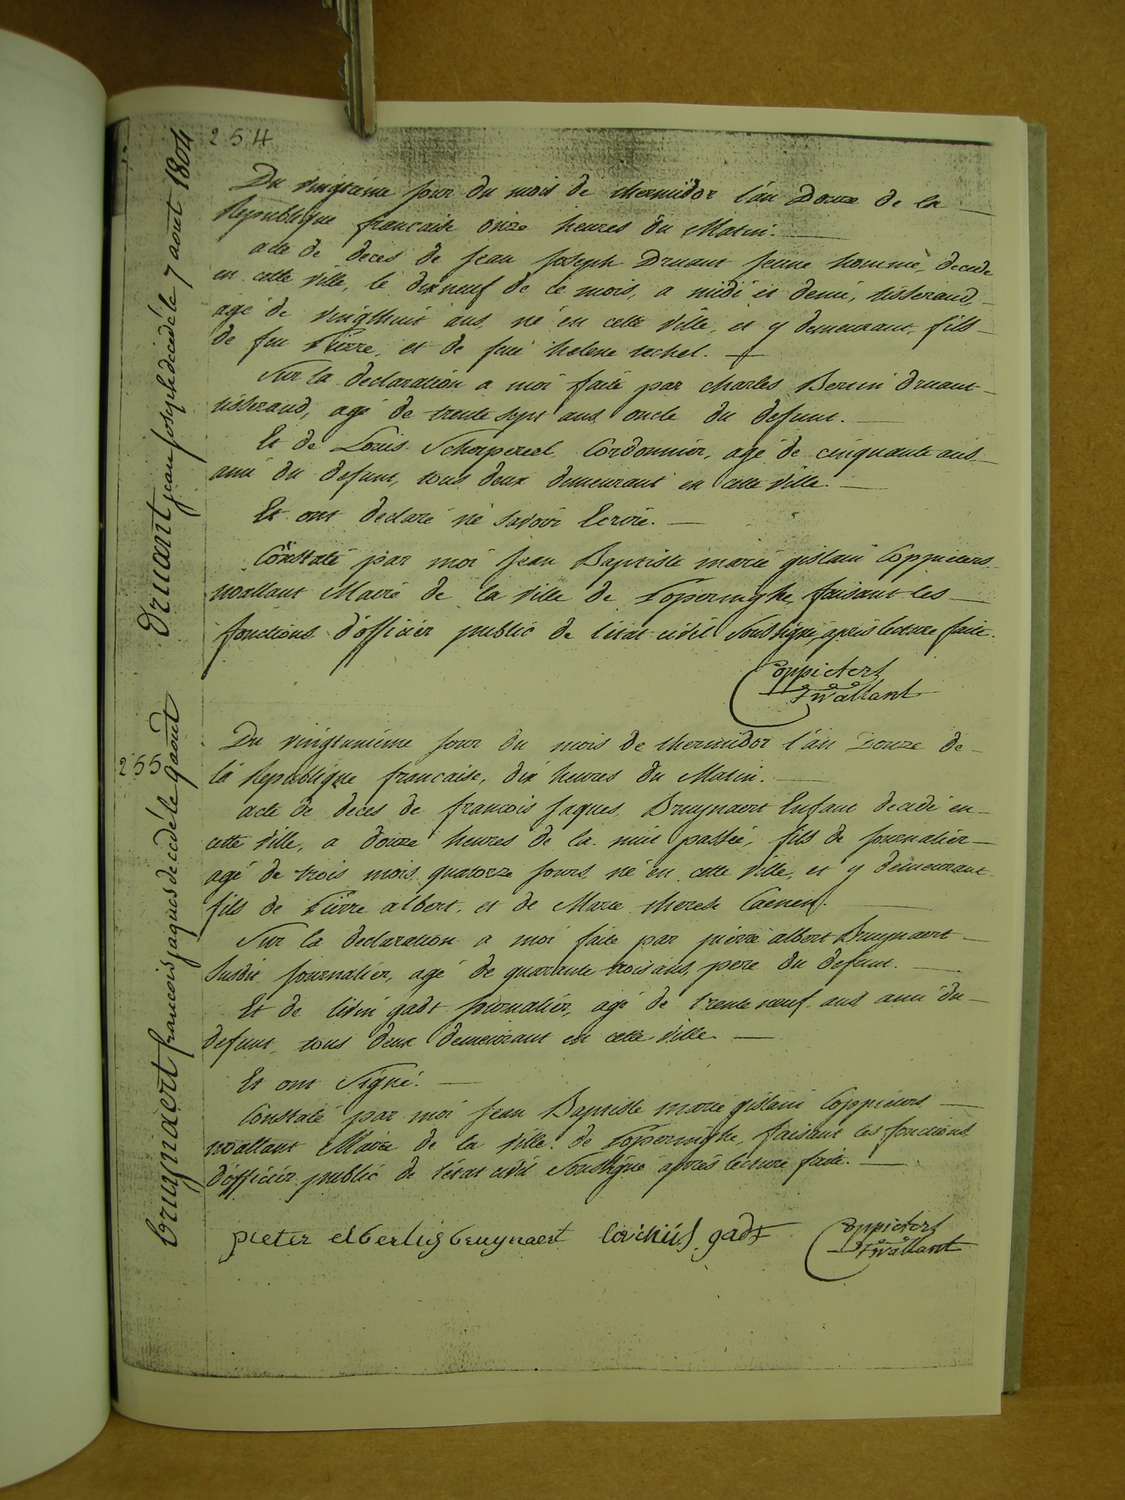 254
Druant jean joseph decédé le 7 aout 1804
Du vingtaine jour du mois de thermidor l'an Douze de la
Republique francaise onze heures du Matin.
acte de deces de jean joseph Druant jeune homme, decede
en cette ville, le dixneuf de ce mois, a midi et demi, tisserand
agé de vingthuit ans, né en cette ville, et y demeurant, fils
de feu Pierre, et de feue helene
Sur la declaration a moi faite par charles Druant
tisserand, agé de trente sept ans, oncle du defunt.
Et de Louis Scherpereel Cordonnier, agé de cinquante ans
ami du defunt, tous deux demeurant en cette ville.
Et ont declaré né savoir Ecrire.
Constaté par moi jean Baptiste marie gislain Coppieters
wallant Maire de la ville de Poperinghe, faisant les
fonctions d'officier public de l'état civil Soussigné, après lecture faite.
Coppieters
Twallant
255
bruynaert francois jaques decedé le 9 aout
Du vingtunieme jour du mois de thermidor l'an Douze de
la Republique francaise, dix heures du Matin.
acte de deces de francois jaques Bruynaert Enfant decedé en
cette ville, a douze heures de la nuit passée, fils de journalier
agé de trois mois quatorze jours né en cette ville, et y demeurant
fils de Pierre albert, et de Marie therese Caenen.
Sur la declaration a moi faite par pierre albert Bruynaert
susdit journalier, agé de quarante trois ans, pere du defunt.
Et de livin gadt journalier, agé de trente neuf ans ami du
defunt, tous deux demeurant en cette ville
Et ont Signé.
Constaté par moi jean Baptiste marie gislain Coppieters
wallant Maire de la ville de Poperinghe, faisant les fonctions
d'officier public de l'état civil Soussigné après lecture faite.
pieter elbertus bruynaert gadt Coppieters
Twallant